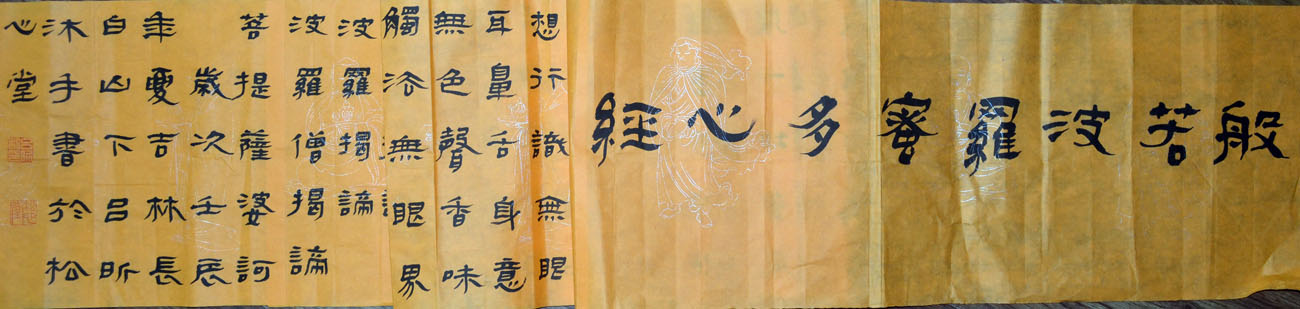 般若波羅蜜多心經
想行識無眼
耳鼻舌身意
無色聲香味
觸法無眼界
波羅揭諦
波羅僧揭諦
菩提薩婆訶
歲次壬辰
年夏吉林長
白山下呂昕
沐手書於松
心堂